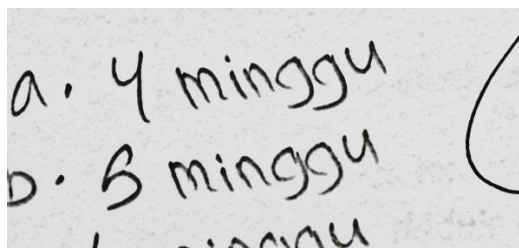 a. 4 minggu
b. 5 minggu
minggu